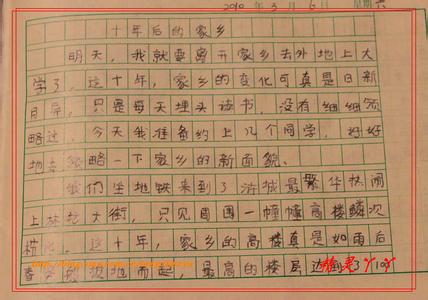 2010年3月6日 星期六
十年后的家乡
明天，我就要离开家乡去外地上大
学了，这十年，家乡的变化可真是日新
月异，只是每天埋头读书，没有细细领
略过，今天我准备约上几个同学，好好
地去领略一下家乡的新面貌。
我们坐地铁来到了清城最繁华热闹
上林大街，只见周围一幢幢高楼鳞次
栉比，这十年，家乡的高楼真是如雨后
春笋般拔地而起，最高的楼层达